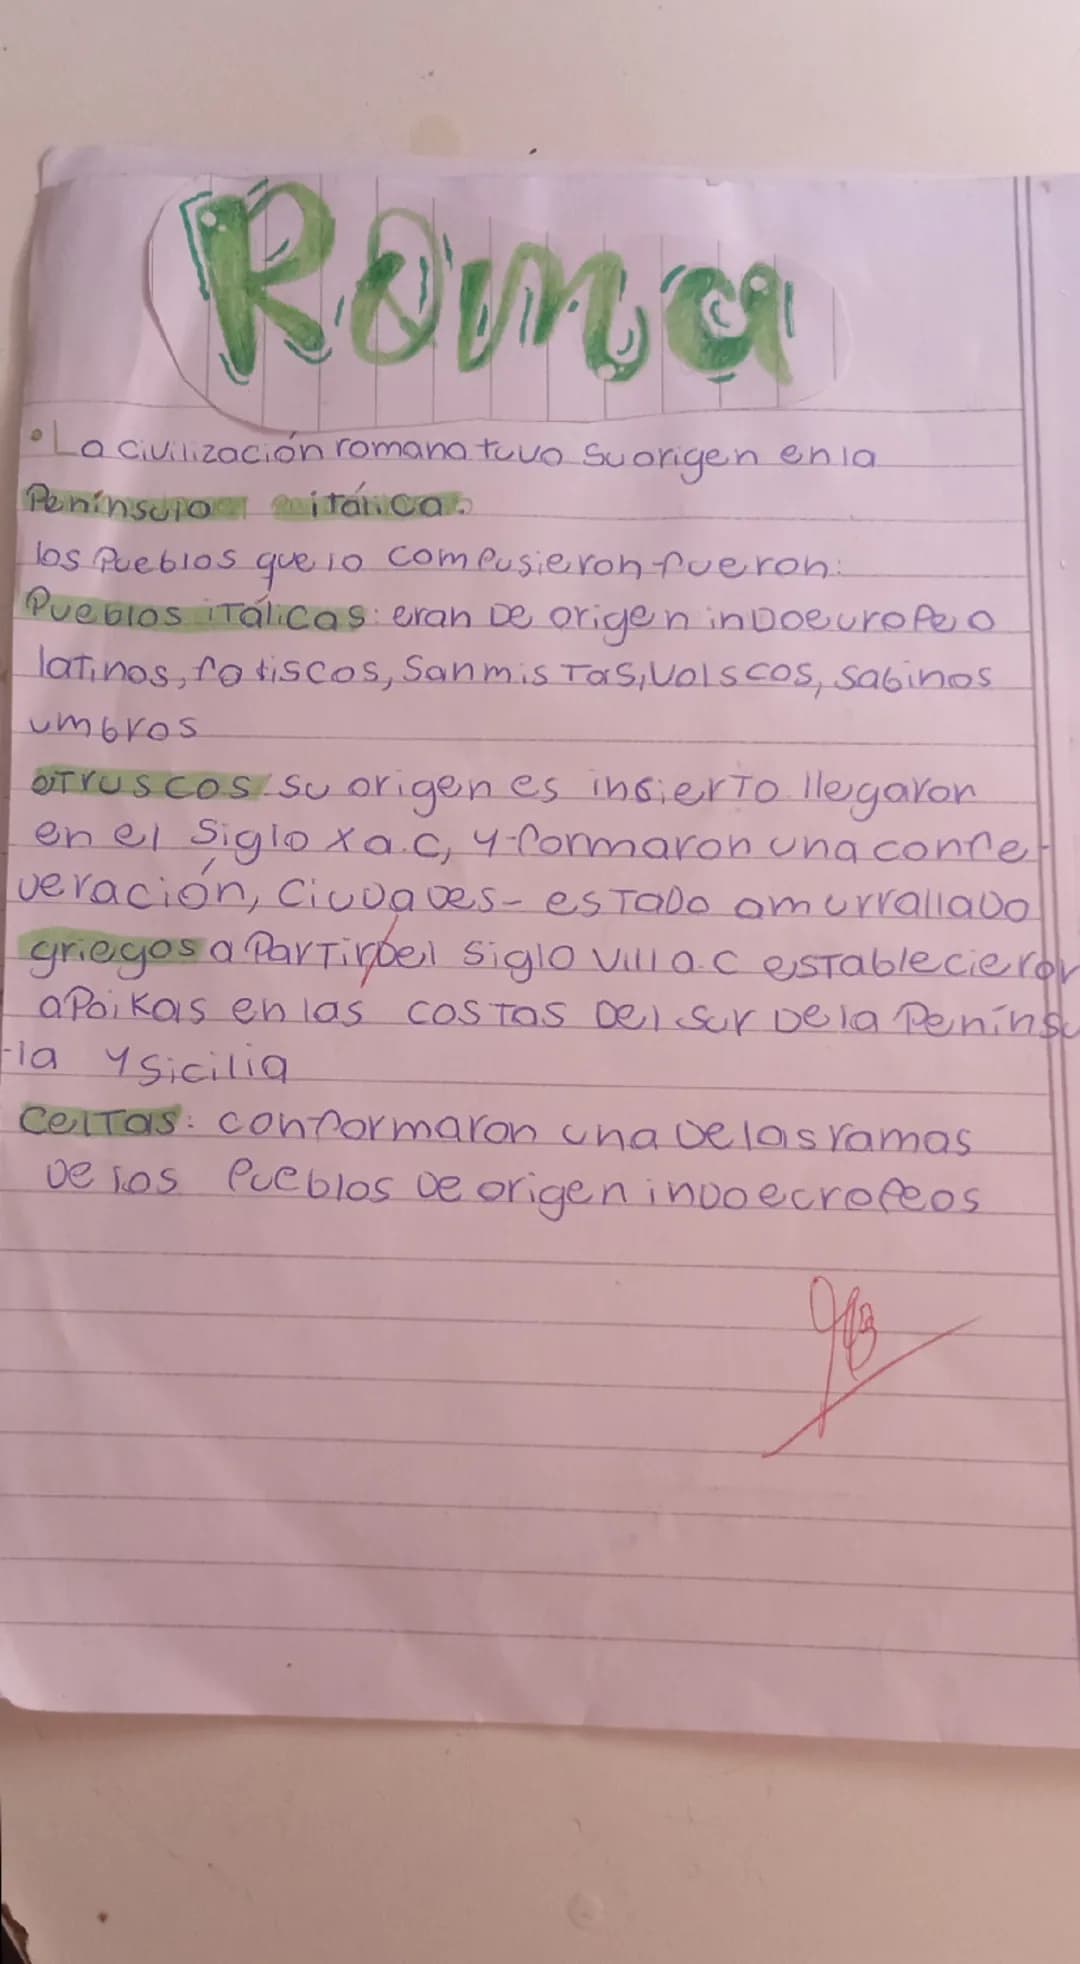 Roma
• La civilización romana tuvo su origen en la
Península itálica.
los Pueblos que lo compusieron fueron:
Pueblos iTálicas: eran De origen inDoeuropeo
laTinos, fatiscos, SanmisTas, Volscos, sabinos
umbros
oTruscos su origen es insierTo llegaron
en el Siglo x a.c, y formaron una confe
veración, CiuDaDes- esTaDo amurrallaDo
griegos a ParTir Del Siglo Vlll a.c esTablecieron
aPoikas en las cosTas Del sur De la Penínsu
-la y Sicilia
CelTas: conformaron una De las ramas
De los Pueblos De origen inDoecropeos